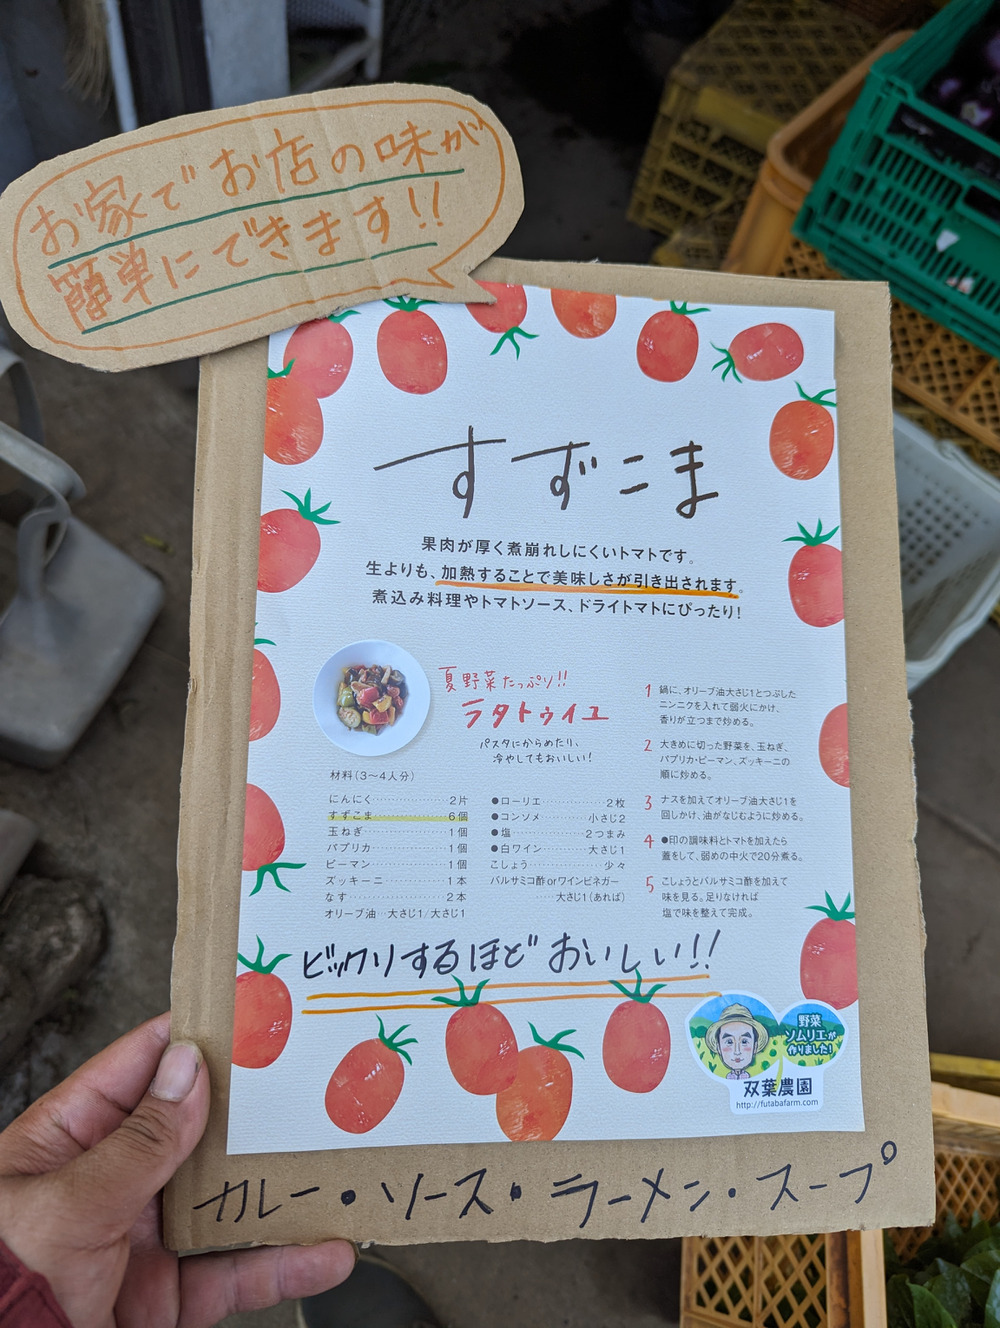 お家でお店の味が
簡単にできます!!
すずこま
果肉が厚く煮崩れしにくいトマトです。
生よりも、加熱することで美味しさが引き出されます。
煮込み料理やトマトソース、ドライトマトにぴったり!
夏野菜たっぷり!!
ラタトゥイユ
パスタにからめたり、
冷やしてもおいしい!
材料(3〜4人分)
にんにく……………2片
すずこま……………6個
玉ねぎ……………1個
パプリカ……………1個
ピーマン……………1個
ズッキーニ……………1本
なす……………2本
オリーブ油…大さじ1/大さじ1
●ローリエ……………2枚
●コンソメ…………小さじ2
●塩……………2つまみ
●白ワイン…………大さじ1
こしょう……………少々
バルサミコ酢orワインビネガー
……大さじ1(あれば)
1 鍋に、オリーブ油大さじ1とつぶした
ニンニクを入れて弱火にかけ、
香りが立つまで炒める。
2 大きめに切った野菜を、玉ねぎ、
パプリカ・ピーマン、ズッキーニの
順に炒める。
3 ナスを加えてオリーブ油大さじ1を
回しかけ、油がなじむように炒める。
4 ●印の調味料とトマトを加えたら
蓋をして、弱めの中火で20分煮る。
5 こしょうとバルサミコ酢を加えて
味を見る。足りなければ
塩で味を整えて完成。
ビックリするほどおいしい!!
野菜
ソムリエが
作りました!
双葉農園
http://futabafarm.com
カレー・ソース・ラーメン・スープ